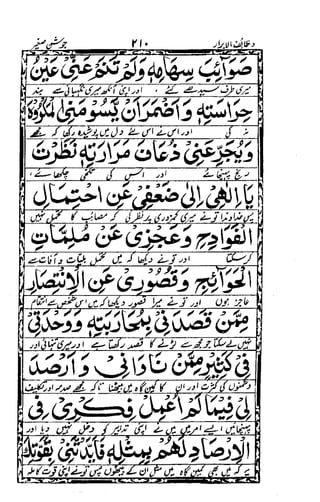 وظائف الابرار ٢١٠ جوشن صغیر
صَوَآئِبَ سِهَامِهٖ وَلَمْ تَنَمْ عَنِّیْ عَیْنُ
میری طرف سیدھے کئے اور اپنی آنکھ میری نگہبانی سے بند
حِرَاسَتِهٖ وَاَضْمَرَ اَنْ یَّسُوْمَنِی الْمَکْرُوْهَ
نہ کی اور اس نے اس نے دل میں پوشیدہ رکھا کہ مجھے
وَیُجَرِّعَنِیْ ذُعَافَ مَرَارَتِهٖ نَظَرْتَ
رنج پہنچائے اور اس کی تلخی چکھائے
یَا اِلٰهِیْ اِلٰی ضَعْفِیْ عَنِ احْتِمَالِ
پس خداوندا تو نے میری کمزوری پر نظر کی کہ مصائب کا تحمل نہیں
الْفَوَادِحِ وَعَجْزِیْ عَنْ مُلِمَّاتِ
کرسکتا اور تو نے دیکھا کہ میں تحمل بلیات و آفات سے
الْحَوَآئِجِ وَقُصُوْرِیْ عَنِ الْاِنْتِصَارِ
عاجز ہوں اور تو نے میرا قصور دیکھا کہ میں اس شخص سے انتقام
مِمَّنْ قَصَدَنِیْ بِمُحَارَبَتِهٖ وَوَحْدَتِیْ
نہیں لے سکتا جو مجھ سے لڑنے کا قصد رکھتا ہے اور میری تنہائی اور
فِیْ کَثِیْرٍ مِّمَّنْ نَاوَانِیْ وَاَرْصَدَ
دشمنوں کی کثرت اور ان کا کمین گاہ میں بیٹھنا تاکہ مجھے صدمہ اور تکلیف
لِیْ فِیْمَا لَمْ اُعْمِلْ فِکْرِیْ فِی
پہنچائیں ایسے امر میں میں نے اپنی تدبیر کو دخل نہیں دیا اور
الْاِرْصَادِ لَهُمْ بِمِثْلِهٖ فَاَیَّدْتَّنِیْ بِقُوَّتِكَ
نہ کہ میں بھی کمین گاہ میں مثل ان کے بیٹھوں پس تو نے اپنی قوت کاملہ